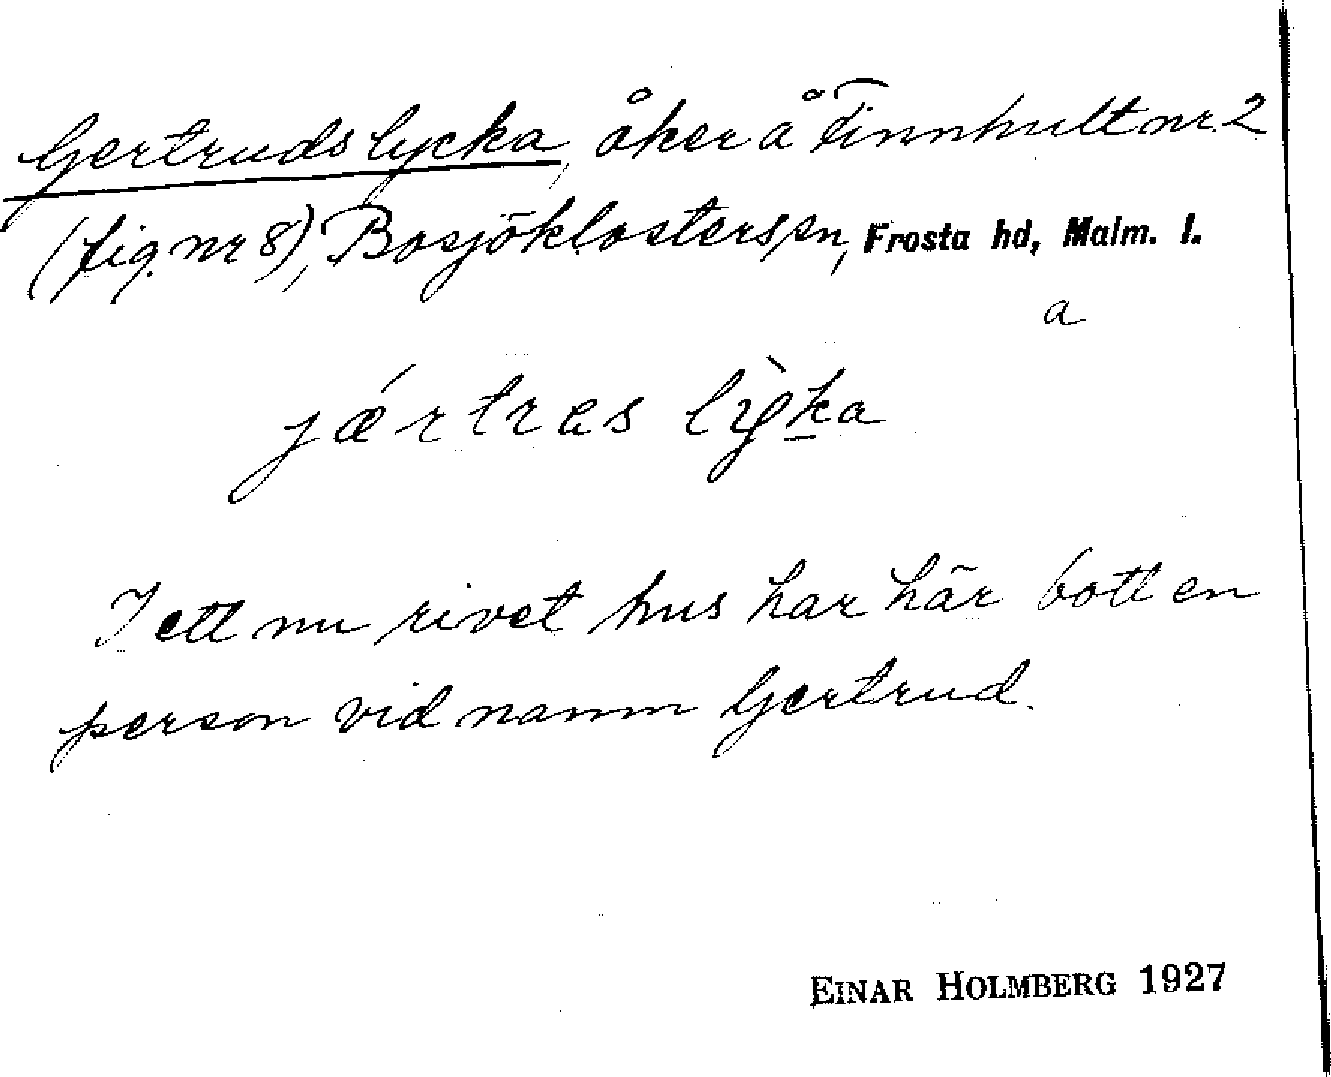 Gertrudslycka, åker å Tinnhult nr 2
(fig. nr 8), Bosjöklosters sn, Frosta hd, Malm. l.
a
jǽrtras lỳka
I ett nu rivet hus har här bott en
person vid namn Gertrud.
EINAR HOLMBERG 1927